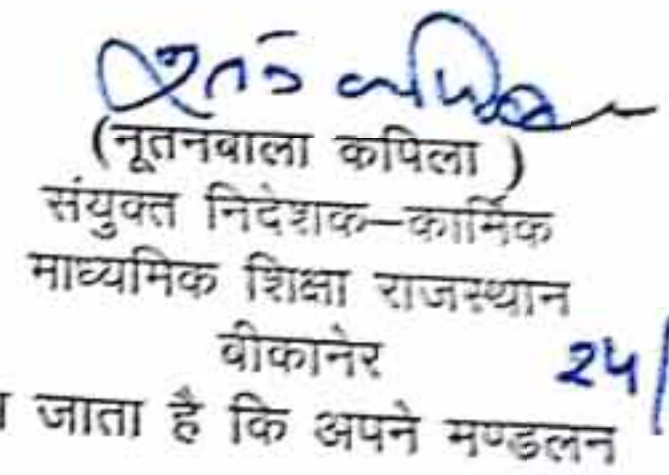 (नूतनबाला कपिला )
संयुक्त निदेशक–कार्मिक
माध्यमिक शिक्षा राजस्थान
बीकानेर
24/
जाता है कि अपने मण्डलन